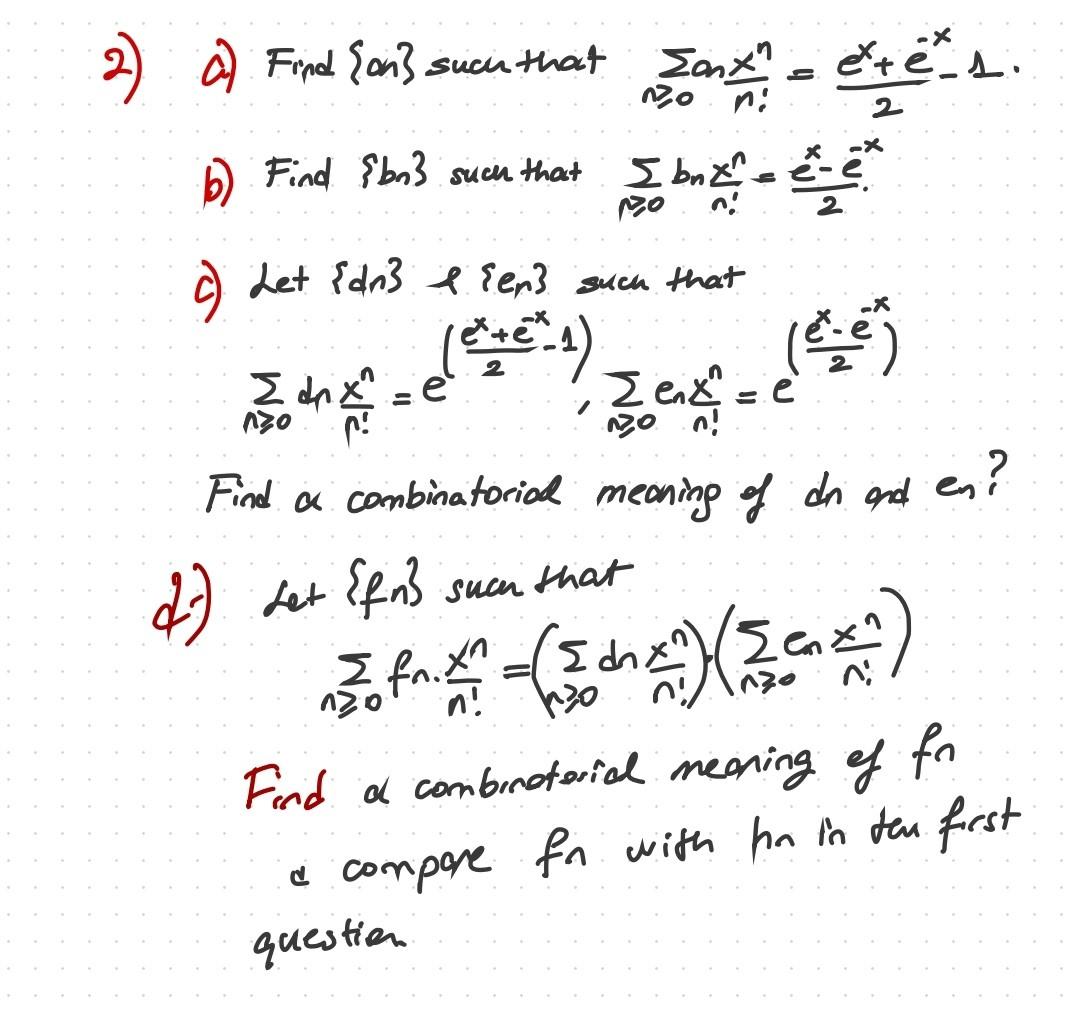 2) a) Find {an} such that ∑_{n≥0} an x^n/n! = (e^x + e^-x)/2 - 1.
b) Find {bn} such that ∑_{n≥0} bn x^n/n! = (e^x - e^-x)/2.
c) Let {dn} & {en} such that
∑_{n≥0} dn x^n/n! = e^((e^x + e^-x)/2 - 1), ∑_{n≥0} en x^n/n! = e^((e^x - e^-x)/2)
Find a combinatorial meaning of dn and en?
d-) Let {fn} such that
∑_{n≥0} fn. x^n/n! = (∑_{n≥0} dn x^n/n!).(∑_{n≥0} en x^n/n!)
Find a combinatorial meaning of fn
& compare fn with hn in first
question